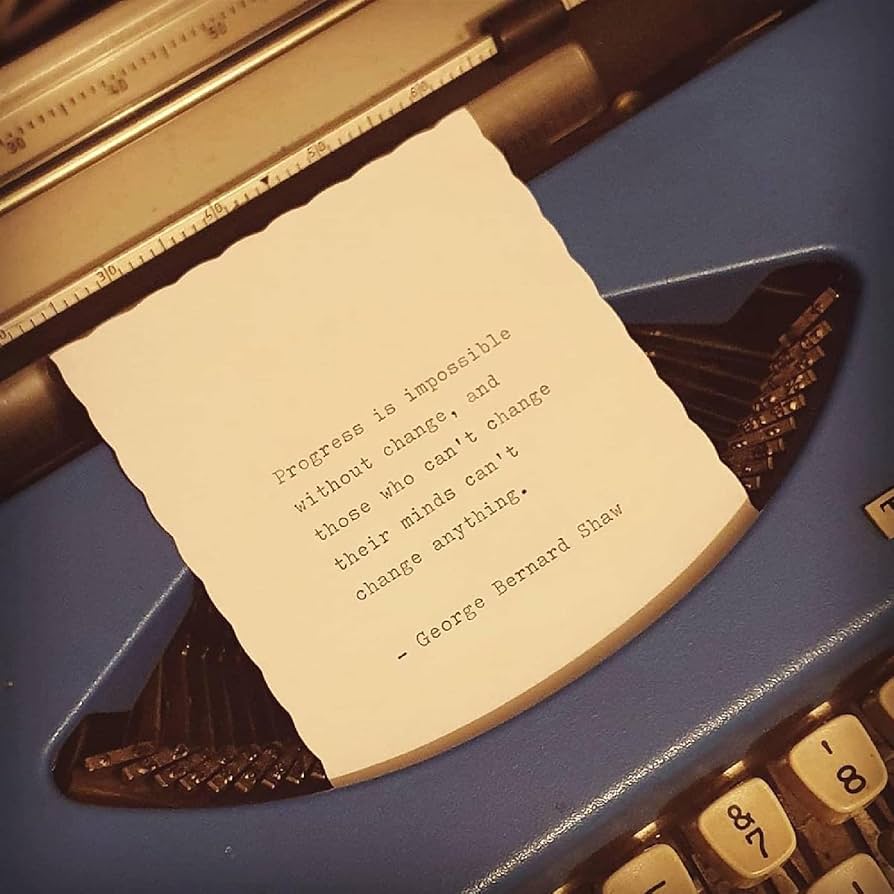 50
40
30
60
50
40
30
Progress is impossible
without change, and
those who can't change
their minds can't
change anything.
- George Bernard Shaw
T
-
8
&
7